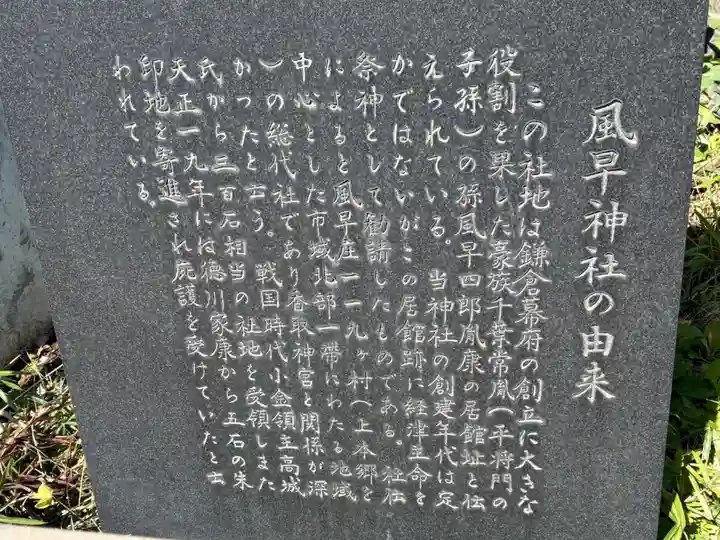 風早神社の由来
この社地は鎌倉幕府の創立に大きな
役割を果した豪族千葉常胤(平将門の
子孫)の孫風早四郎胤康の居館址と伝
えられている。当神社の創建年代は定
かではないがこの居館跡に経津主命を
祭神として勧請したものである。社伝
によると風早庄一一九ヶ村(上本郷を
中心とした市域北部一帯にわたる地域
)の総代社であり香取神宮と関係が深
かったと言う。戦国時代小金領主高城
氏から三百石相当の社地を受領しまた
天正一九年には徳川家康から五石の朱
印地を寄進され庇護を受けていたと言
われている。